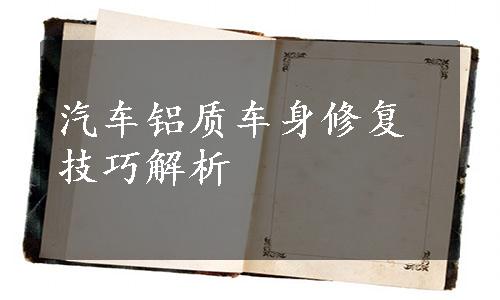 汽车铝质车身修复
技巧解析